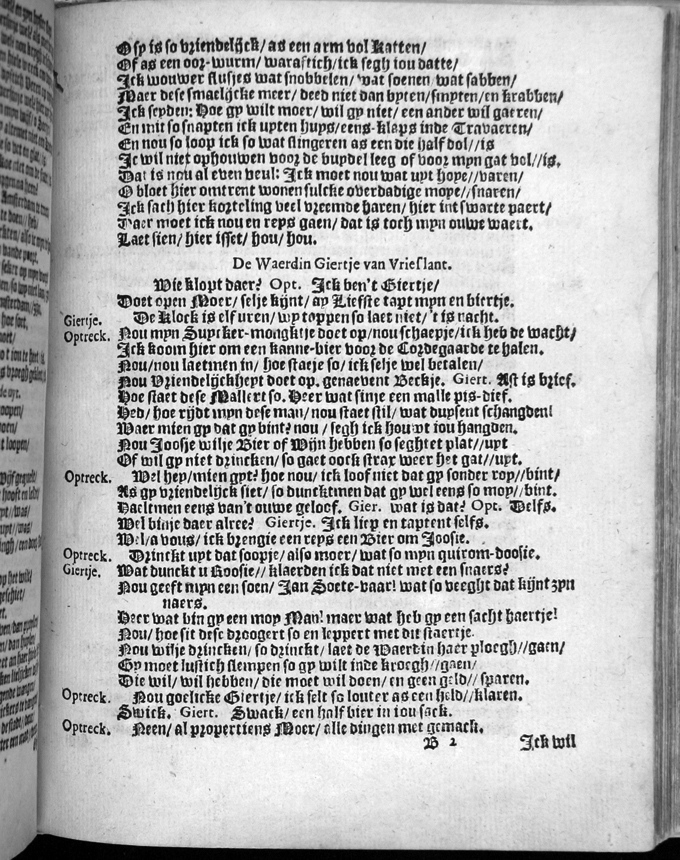 O sy is so vriendelijck/ as een arm vol Katten/
Of as een oor-wurm/ waraftich/ ick segh iou datte/
Ick wouwer flusjes wat snobbelen/ wat soenen/ wat sabben/
Maer dese smaelijcke meer/ deed niet dan byten/ smyten/ en krabben/
Ick seyden: Hoe gy wilt moer/ wil gy niet/ een ander wil gaeren/
En mit so snapten ick upten huys/ eens-klaps inde Travaeren/
En nou so loop ick so wat slingeren as een die half dol//is
Ic wil niet ophouwen voor de buydel leeg of voor myn gat vol//is.
Dat is nou al even veul: Ick moet nou wat upt hoye//varen/
O bloet hier omtrent wonen sulcke overdadige moye//snaren/
Ick sach hier korteling veel vreemde haren/ hier int swarte paert/
Daer moet ick nou en reys gaen/ dat is toch myn ouwe waert.
Laet sien/ hier isset/ hou/ hou.
De Waerdin Giertje van Vrieslant.
Wie klopt daer? Opt. Ick ben't Giertje/
Doet open Moer/ selje kijnt/ ay Liefste tapt myn en biertje.
Giertje. De Klock is elf uren/ wy toppen so laet niet/ 't is nacht.
Optreck. Nou myn Suycker-mongktje doet op/ nou schaepje/ ick heb de wacht/
Ick koom hier om een kanne-bier voor de Cordegaerde te halen.
Nou/ nou laetmen in/ hoe staeje so/ ick selje wel betalen/
Nou Vriendelijckheyt doet op. genaevent Beckje. Giert. Ast is brief.
Hoe staet dese Mallert so. Heer wat sinje een malle pis-dief.
Hed/ hoe rijdt myn dese man/ nou staet stil/ wat duysent schangden!
Waer mien gy dat gy bint? nou/ segh ick houwt iou hangden.
Nou Joosje wilje Bier of Wijn hebben so seghtet plat//uyt
Of wil gy niet drincken/ so gaet oock strax weer het gat//uyt.
Optreck. Wel hey/ mien gyt? hoe nou/ ick loof niet dat gy sonder roy//bint/
As gy vriendelijck siet/ so duncktmen dat gy wel eens so moy//bint.
Haeltmen eens van't ouwe geloof. Gier. wat is dat? Opt. Delfs.
Wel binje daer alree? Giertje. Ick liep en taptent selfs.
Wel/ a vous/ ick brengie een reys een Bier om Joosie.
Optreck. Drinckt uyt dat soopje/ also moer/ wat so myn quirom-doosie.
Giertje. Wat dunckt u Roosie// klaerden ick dat niet met een snaers?
Nou geeft myn een soen/ Jan Soete-vaar! wat so veeght dat kijnt zyn
naers.
Heer wat bin gy een moy Man! maer wat heb gy een sacht haertje!
Nou/ hoe sit dese droogert so en leppert met dit staertje.
Nou wilje drincken/ so drinckt/ laet de Waerdin haer ploegh//gaen/
Gy moet lustich slempen so gy wilt inde kroegh//gaen/
Die wil/ wil hebben/ die moet wil doen/ en geen geld//sparen.
Optreck. Nou goelicke Giertje/ ick selt so louter as een held//klaren.
Swick. Giert. Swack/ een half bier in iou sack.
Optreck. Neen/ al propertiens Moer/ alle dingen met gemack.
B 2 Ick wil